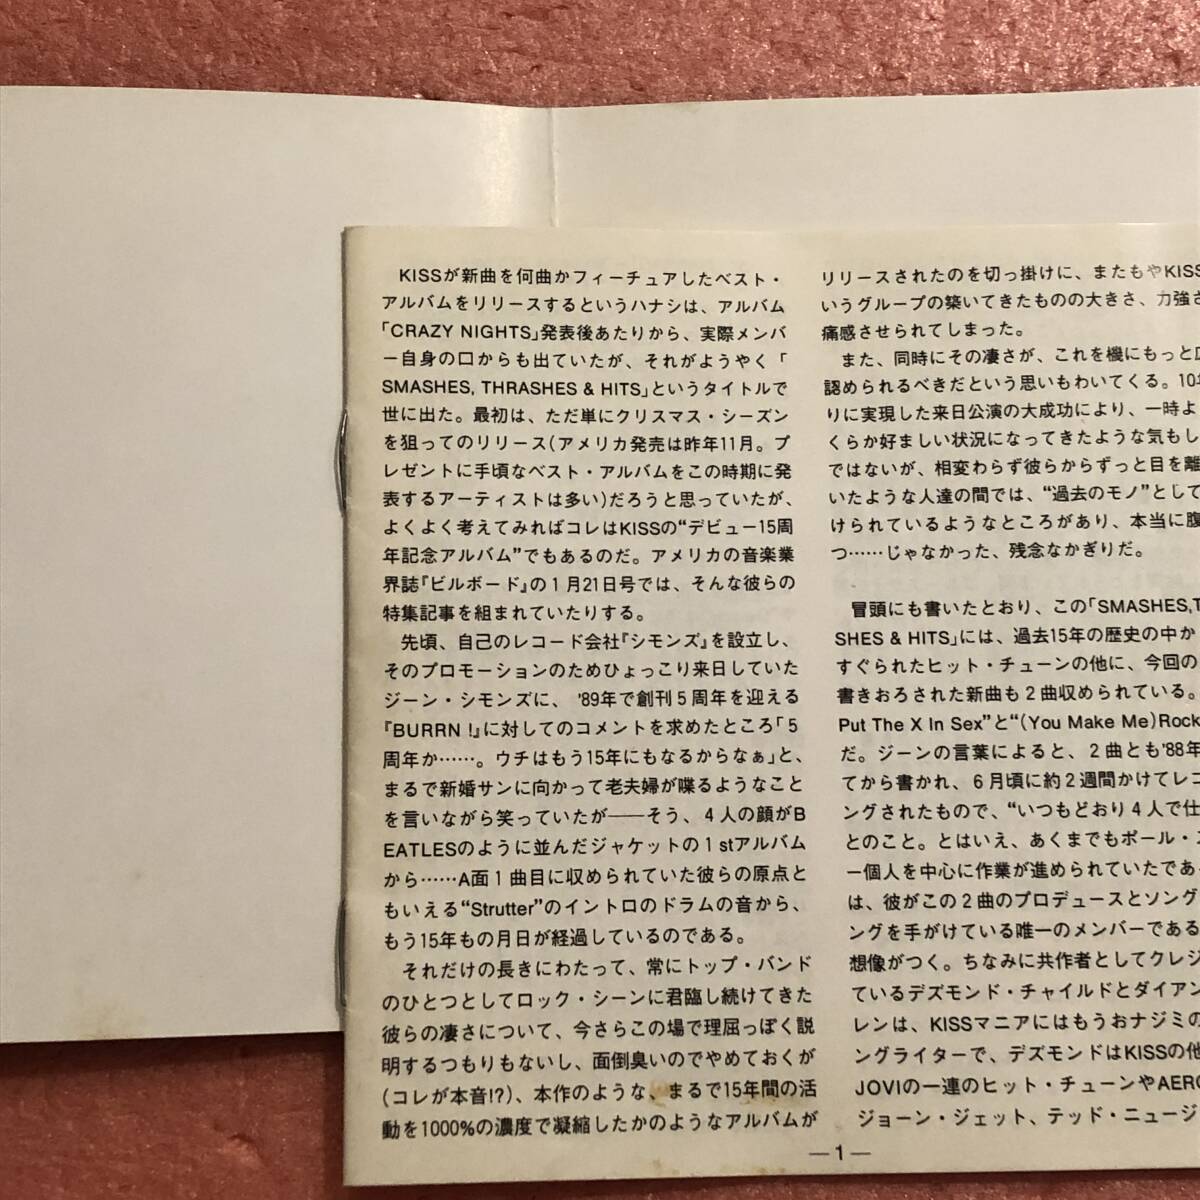 KISSが新曲を何曲かフィーチュアしたベスト・
アルバムをリリースするというハナシは、アルバム
「CRAZY NIGHTS」発表後あたりから、実際メンバ
ー自身の口からも出ていたが、それがようやく「
SMASHES, THRASHES & HITS」というタイトルで
世に出た。最初は、ただ単にクリスマス・シーズン
を狙ってのリリース(アメリカ発売は昨年11月。プ
レゼントに手頃なベスト・アルバムをこの時期に発
表するアーティストは多い)だろうと思っていたが、
よくよく考えてみればコレはKISSの“デビュー15周
年記念アルバム”でもあるのだ。アメリカの音楽業
界誌『ビルボード』の1月21日号では、そんな彼らの
特集記事を組まれていたりする。
先頃、自己のレコード会社『シモンズ』を設立し、
そのプロモーションのためひょっこり来日していた
ジーン・シモンズに、'89年で創刊5周年を迎える
『BURRN!』に対してのコメントを求めたところ「5
周年か……。ウチはもう15年にもなるからなぁ」と、
まるで新婚サンに向かって老夫婦が喋るようなこと
を言いながら笑っていたが――そう、4人の顔がB
EATLESのように並んだジャケットの1stアルバム
から……A面1曲目に収められていた彼らの原点と
もいえる“Strutter”のイントロのドラムの音から、
もう15年もの月日が経過しているのである。
それだけの長きにわたって、常にトップ・バンド
のひとつとしてロック・シーンに君臨し続けてきた
彼らの凄さについて、今さらこの場で理屈っぽく説
明するつもりもないし、面倒臭いのでやめておくが
(コレが本音!?)、本作のような、まるで15年間の活
動を1000%の濃度で凝縮したかのようなアルバムが
リリースされたのを切っ掛けに、またもやKISS
いうグループの築いてきたものの大きさ、力強さ
痛感させられてしまった。
また、同時にその凄さが、これを機にもっと
認められるべきだという思いもわいてくる。10年
りに実現した来日公演の大成功により、一時よ
くらか好ましい状況になってきたような気もし
ではないが、相変わらず彼らからずっと目を離
いたような人達の間では、“過去のモノ”として
けられているようなところがあり、本当に腹
つ……じゃなかった、残念なかぎりだ。
冒頭にも書いたとおり、この「SMASHES,T
SHES & HITS」には、過去15年の歴史の中か
すぐられたヒット・チューンの他に、今回の
書きおろされた新曲も2曲収められている。
Put The X In Sex”と“(You Make Me)Rock
だ。ジーンの言葉によると、2曲とも'88年
てから書かれ、6月頃に約2週間かけてレコ
ングされたもので、“いつもどおり4人で仕
とのこと。とはいえ、あくまでもポール・ス
ー個人を中心に作業が進められていたであ
は、彼がこの2曲のプロデュースとソング
ングを手がけている唯一のメンバーである
想像がつく。ちなみに共作者としてクレジ
ているデズモンド・チャイルドとダイアン
レンは、KISSマニアにはもうおナジミの
ングライターで、デズモンドはKISSの他
JOVIの一連のヒット・チューンやAERO
ジョーン・ジェット、テッド・ニュージ
―1―